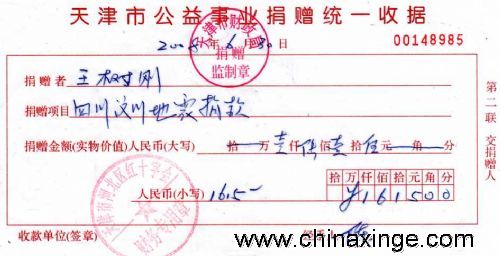 天津市公益事业捐赠统一收据
2008年6月30日
天津市财政局
捐赠
监制章
00148985
捐赠者 王树刚
捐赠项目 四川汶川地震捐款
捐赠金额(实物价值)人民币(大写) 拾万壹仟佰壹拾伍元角分
拾万仟佰拾元角分
人民币(小写) 1615— ¥161500
天津市河北区红十字会
财务专用章
收款单位(签章)
第二联 交捐赠人
www.chinaxinge.com